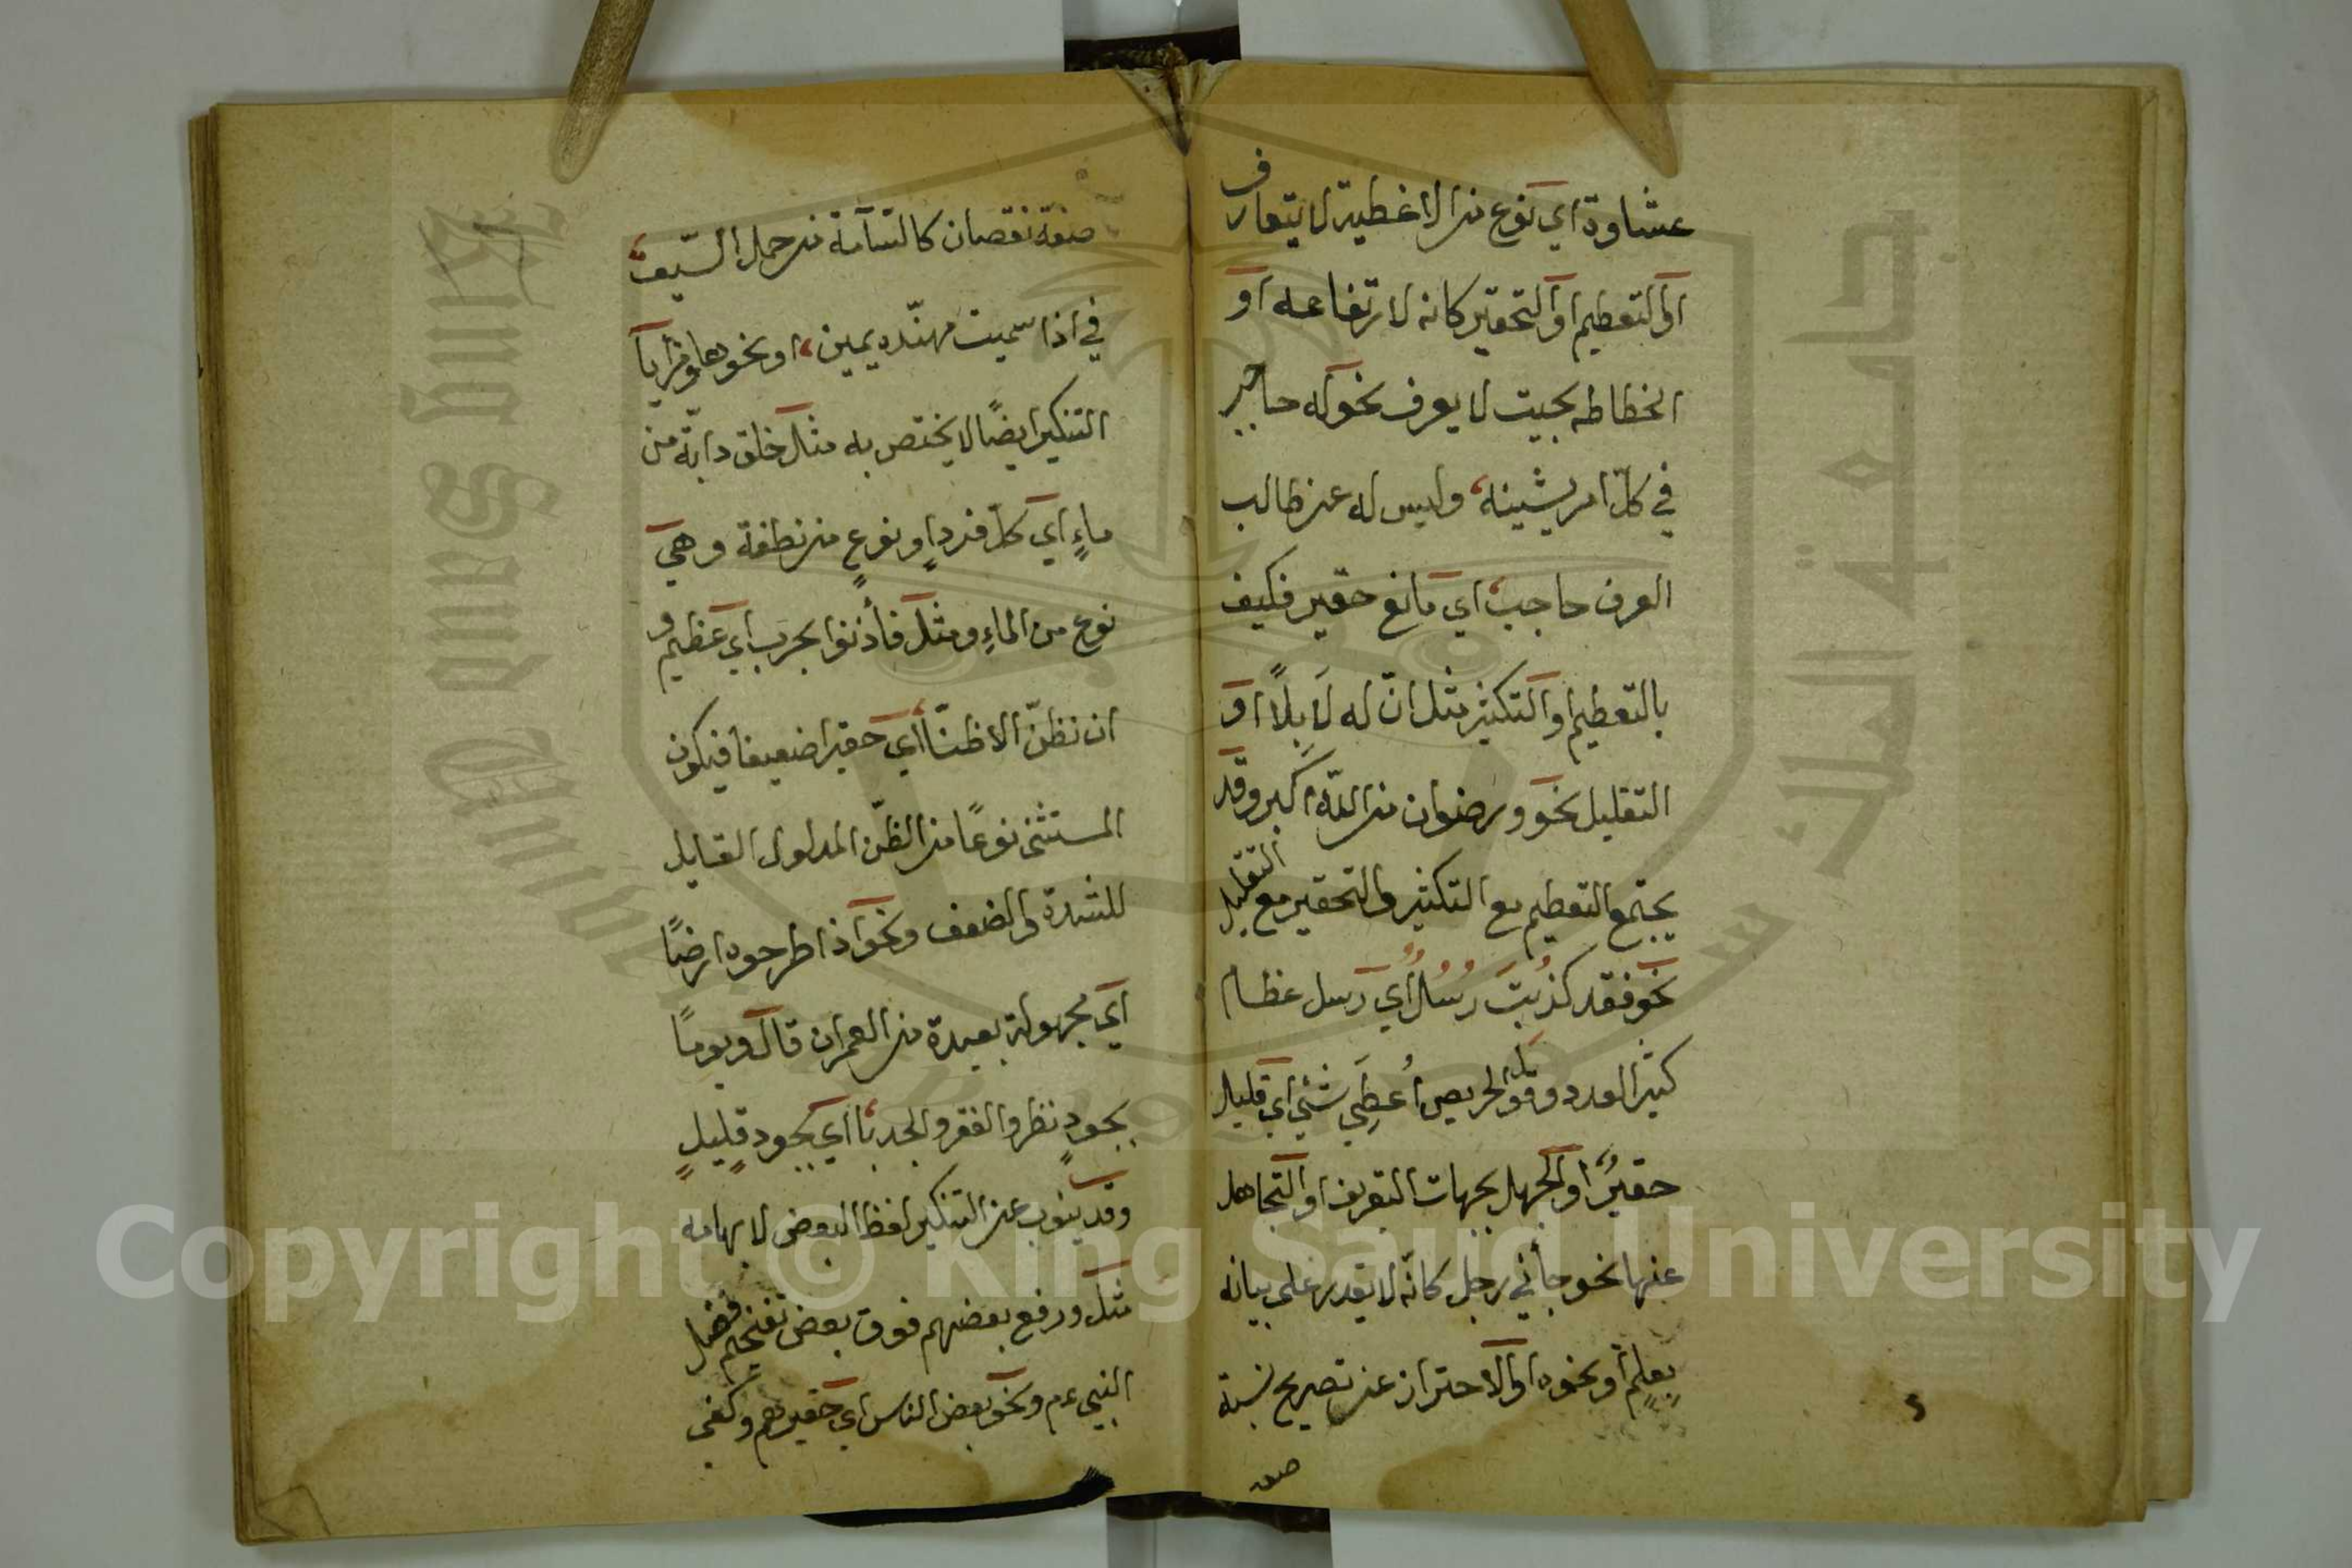 عشاوة اي نوع من الاغطية لا يتعارف
او التعظيم او التحقير كانه لارتفاعه او
انحطاطه بحيث لا يعرف نحو له حاجب
في كلّ امر يشينه، وليس له عن طالب
العرف حاجب، اي مانع حقير فكيف
بالتعظيم او التكثير مثل ان له لَابِلًا او
التقليل نحو ورضوان من الله اكبر وقد
يجتمع التعظيم مع التكثير والتحقير مع التقليل
نحو فقد كذبت رُسُلٌ اي رسل عظام
كثير العدد وقول الحريص أُعطِيَ شئ اي قليل
حقيرٌ، او الجهل بجهات التعريف او التجاهل
عنها نحو جأني رجل كانّه لا يقدر على بيانه
بِعلمٍ او نحوه او الاحتراز عن تصريح نسبة
صفة
صفة نقصان كالسّآمة من حمل السّيف،
في اذا سميت مهنّده يمين، او نحوها ومزايا
التنكير ايضًا لا يختص به مثل خلق دابّة من
ماءٍ اي كلّ فردٍ او نوعٍ من نطفة وهي
نوع من الماءِ ومثل فأذنوا بحرب اي عظيم و
ان نظنّ الا ظنّا، اي حقيرا ضعيفا فيكون
المستثنى نوعًا من الظّن المدلول القابل
للشدة والضعف ونحو اذ اطرحوه ارضًا
اي مجهولة بعيدة من العمران قال ويومًا
بجودٍ نطرد الفقر والجدبا، اي بجود قليلٍ
وقد ينوب عن التنكير لفظ البعض لابهامه
مثل ورفع بعضهم فوق بعض تفخيم فضل
النبي عم ونحو بعض الناس اي حقيرهم وكفى
King Saud University
جامعة الملك سعود
1957
Copyright © King Saud University